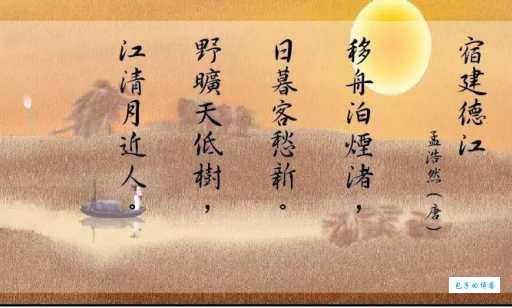 宿建德江
孟浩然（唐）
移舟泊煙渚，
日暮客愁新。
野曠天低樹，
江清月近人。